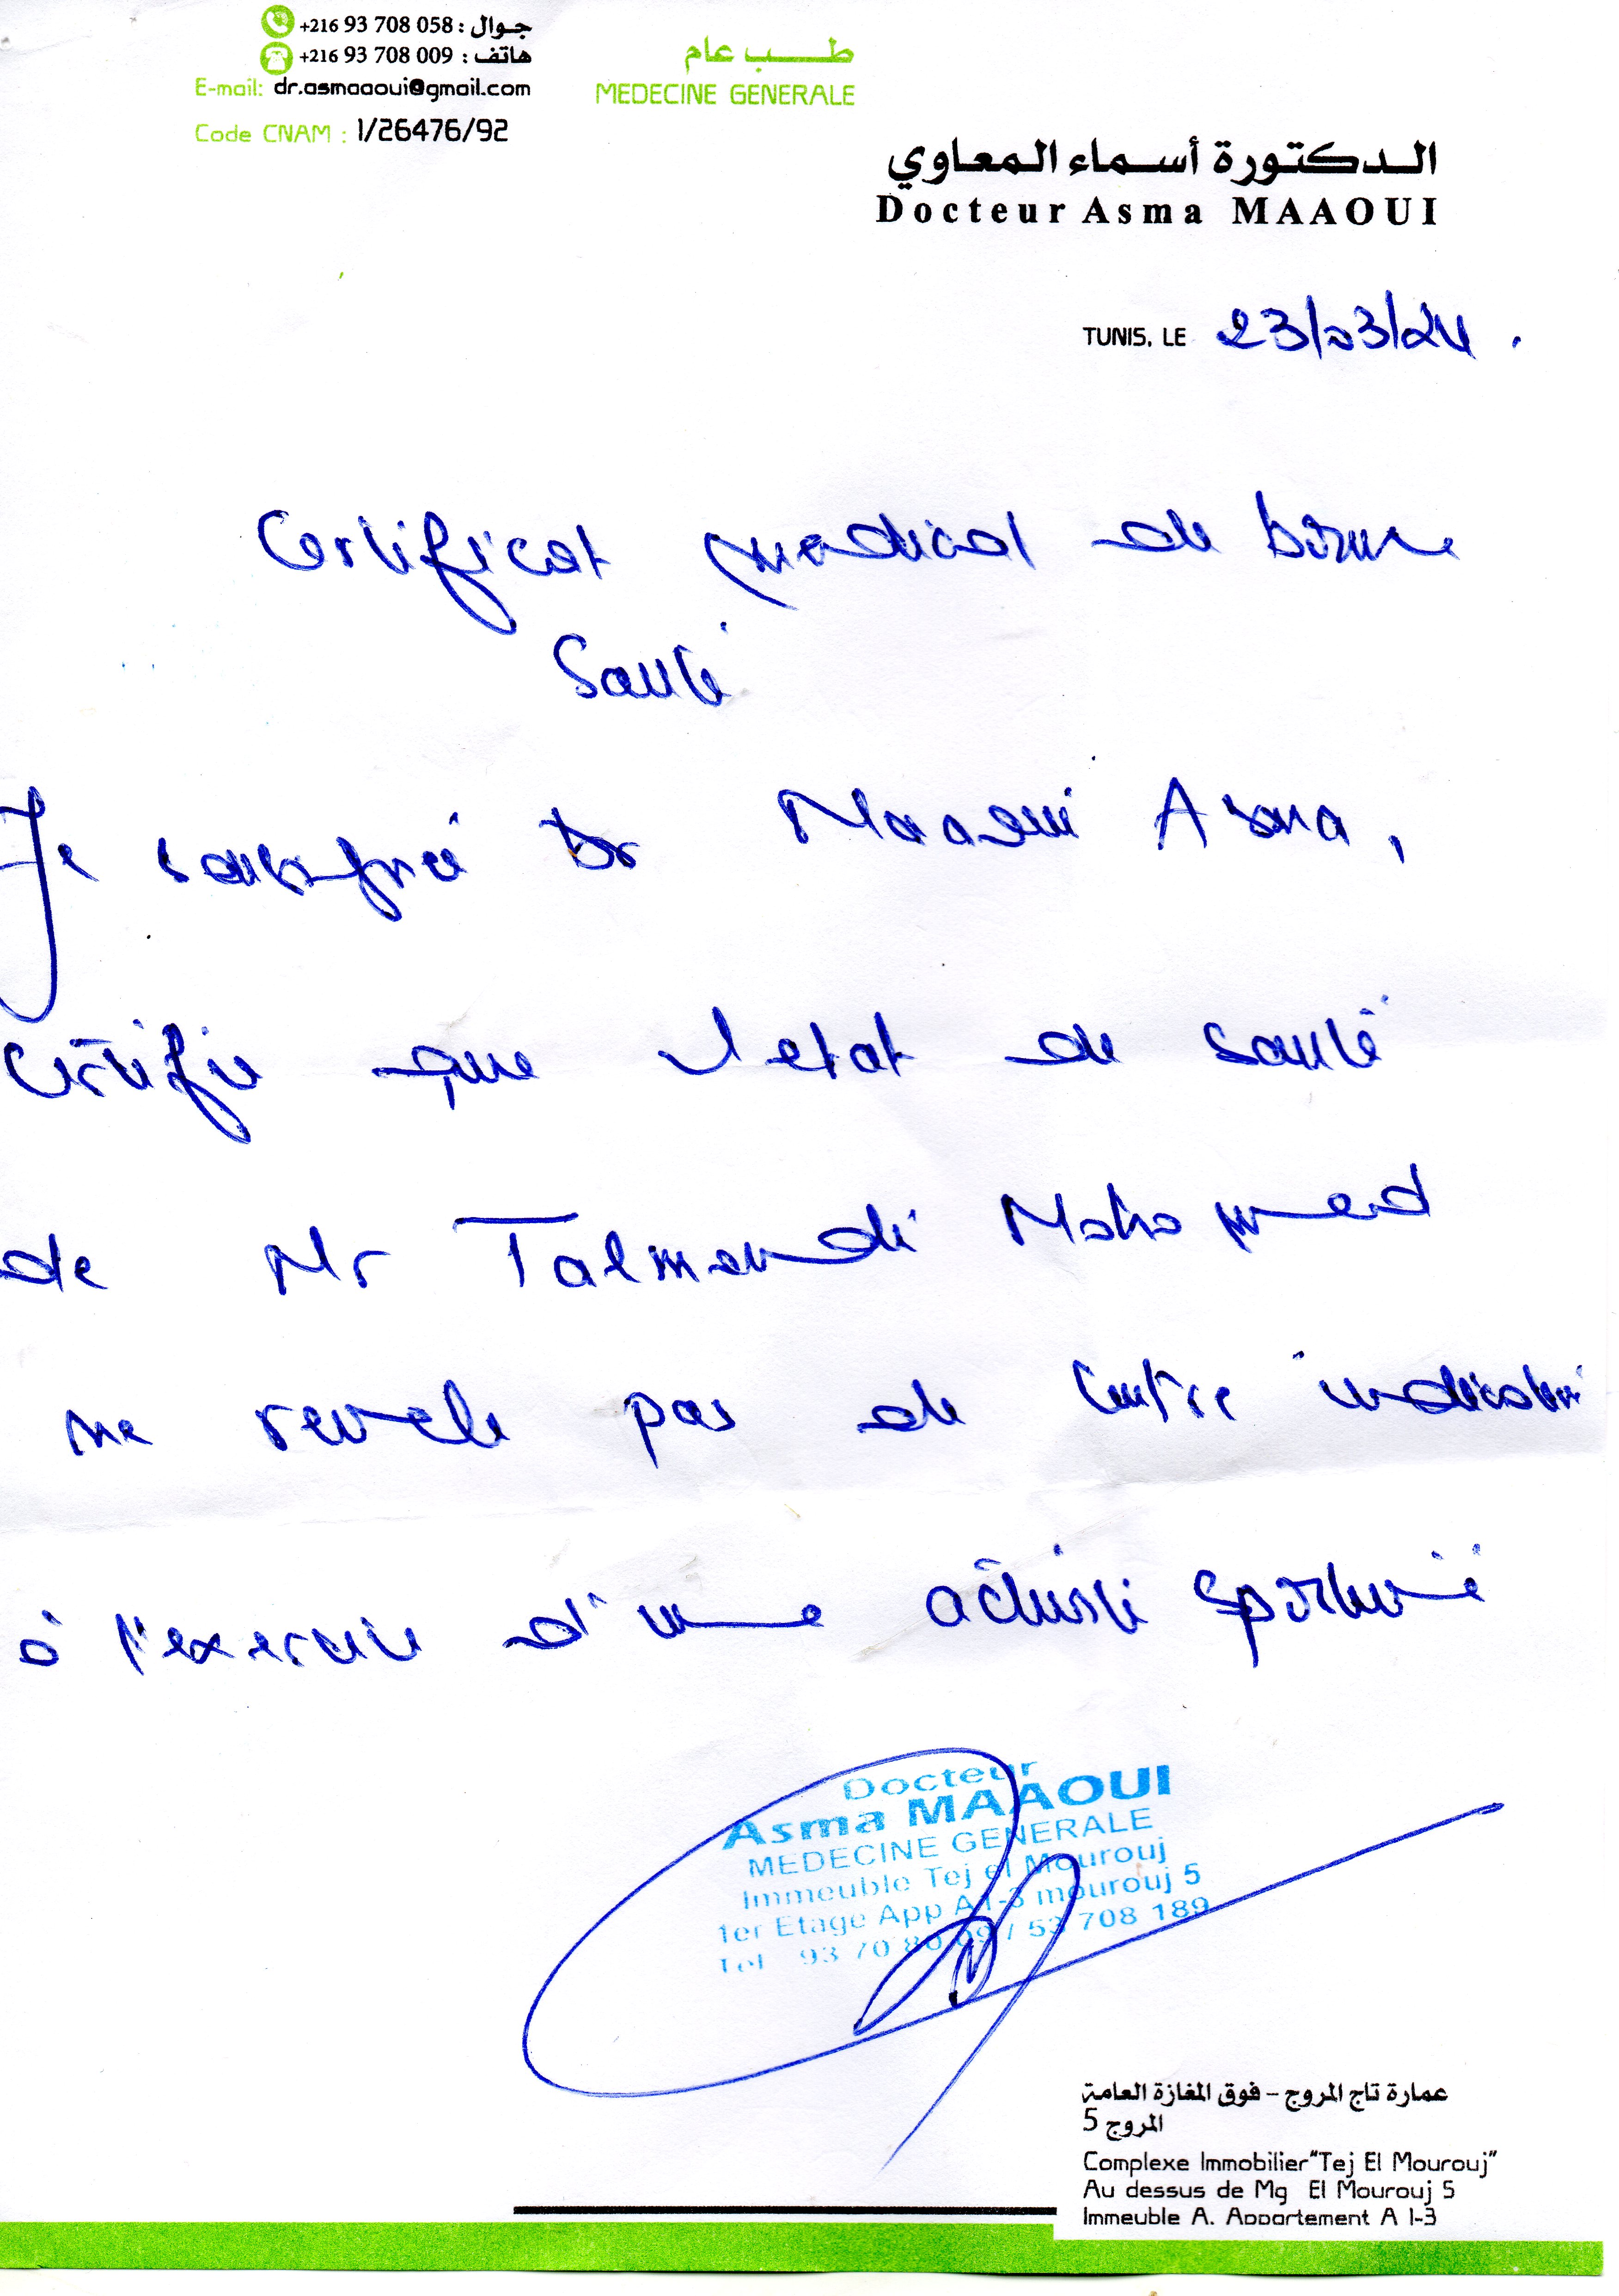 جوال : 058 708 93 216+
هاتف : 009 708 93 216+
E-mail: dr.asmaaoui@gmail.com
Code CNAM : 1/26476/92
طب عام
MEDECINE GENERALE
الدكتورة أسماء المعاوي
Docteur Asma MAAOUI
TUNIS, LE 23/03/24.
Certificat medical de bonne
Santé
Je soussigné Dr Maaoui Asma,
certifie que l'etat de santé
de Mr Talmoudi Mohamed
ne revele pas de contre indication
à l'exercice d'une activité sportive
Docteur
Asma MAAOUI
MEDECINE GENERALE
Immeuble Tej el Mourouj
1er Etage App A 1-3 mourouj 5
Tel 93 70 80 09 / 53 708 189
عمارة تاج المروج - فوق المغازة العامة
المروج 5
Complexe Immobilier "Tej El Mourouj"
Au dessus de Mg El Mourouj 5
Immeuble A. Appartement A 1-3